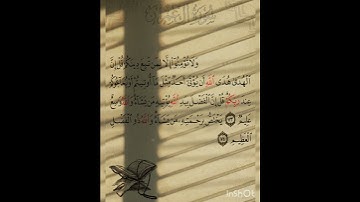 وَلَا تُؤْمِنُوٓا۟ إِلَّا لِمَن تَبِعَ دِينَكُمْ قُلْ إِنَّ
ٱلْهُدَىٰ هُدَى ٱللَّهِ أَن يُؤْتَىٰٓ أَحَدٌ مِّثْلَ مَآ أُوتِيتُمْ أَوْ يُحَآجُّوكُمْ
عِندَ رَبِّكُمْ قُلْ إِنَّ ٱلْفَضْلَ بِيَدِ ٱللَّهِ يُؤْتِيهِ مَن يَشَآءُ وَٱللَّهُ وَٰسِعٌ
عَلِيمٌ ٧٣ يَخْتَصُّ بِرَحْمَتِهِۦ مَن يَشَآءُ وَٱللَّهُ ذُو ٱلْفَضْلِ
ٱلْعَظِيمِ ٧٤
InShOt